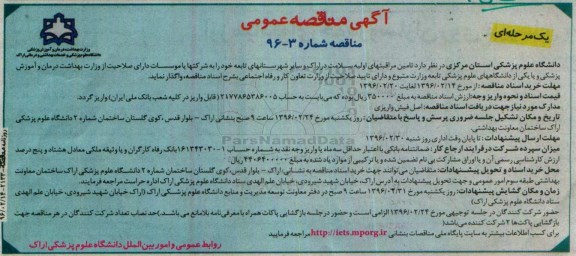 آگهی مناقصه عمومی
یک مرحله‌ای
مناقصه شماره ۳-۹۶
وزارت بهداشت، درمان و آموزش پزشکی
دانشگاه علوم پزشکی و خدمات بهداشتی و درمانی اراک
دانشگاه علوم پزشکی استان مرکزی در نظر دارد تامین مراقبتهای اولیه سلامت در اراک و سایر شهرستانهای تابعه خود را به شرکتها یا موسسات دارای صلاحیت از وزارت بهداشت درمان و آموزش
پزشکی و یا یکی از دانشگاههای علوم پزشکی تابعه وزارت متبوع و دارای تایید صلاحیت از وزارت تعاون کار و رفاه اجتماعی بشرح اسناد مناقصه، واگذار نماید.
مهلت خرید اسناد مناقصه: از مورخ ۱۳۹۶/۰۲/۱۴ لغایت ۱۳۹۶/۰۲/۲۰
قیمت اسناد و نحوه واریز وجه: ارزش اسناد مناقصه به مبلغ ۲۵۰۰۰۰ ریال بوده که می‌بایست به حساب ۲۱۷۷۸۶۵۳۸۶۰۰۵ (قابل واریز در کلیه شعب بانک ملی ایران) واریز گردد.
مدارک مورد نیاز جهت دریافت اسناد: اصل فیش واریزی
تاریخ و مکان تشکیل جلسه ضروری پرسش و پاسخ با متقاضیان: روز یکشنبه مورخ ۱۳۹۶/۰۲/۲۴ ساعت ۹ صبح بنشانی اراک – بلوار قدس، کوی گلستان ساختمان شماره ۲ دانشگاه علوم پزشکی
اراک ساختمان معاونت بهداشتی
مهلت ارسال پیشنهادات: تا پایان وقت اداری روز شنبه ۱۳۹۶/۰۲/۳۰
میزان سپرده شرکت در فرآیند ارجاع کار: ضمانتنامه بانکی با اعتبار حداقل سه ماهه یا واریز وجه نقد به شماره حساب ۱-۱۶۱۳۴۳۰۳۰ بانک رفاه کارگران و یا وثیقه ملکی معادل هشتاد و پنج درصد
ارزش کارشناسی رسمی آن و یا اوراق مشارکت بی نام تضمین شده و یا ترکیبی از موارد یاد شده به مبلغ ۴۴۰۶۴۰۰۰۰۰ ریال.
محل خرید اسناد و تحویل پیشنهادات: متقاضیان می‌توانند جهت خرید اسناد مناقصه به نشانی: اراک – بلوار قدس، کوی گلستان ساختمان شماره ۲ دانشگاه علوم پزشکی اراک ساختمان معاونت
بهداشتی طبقه سوم امور عمومی و جهت تحویل پیشنهادات به آدرس اراک، خیابان شهید شیرودی، خیابان علم الهدی ستاد دانشگاه علوم پزشکی اراک اداره حراست مراجعه فرمایند.
زمان و مکان گشایش پیشنهادات: روز یکشنبه مورخ ۱۳۹۶/۰۲/۳۱ ساعت ۹ صبح در دفتر معاونت توسعه مدیریت و منابع دانشگاه علوم پزشکی اراک (اراک، خیابان شهید شیرودی، خیابان علم الهدی
ستاد دانشگاه علوم پزشکی اراک)
حضور شرکت کنندگان در جلسه توجیهی مورخ ۱۳۹۶/۰۲/۲۴ الزامی است و حضور در جلسه بازگشایی پاکات همراه با معرفی‌نامه بلامانع می باشد. (حد نصاب تعداد شرکت کنندگان در هر مناقصه جهت
بازگشایی پاکت‌ها ۲ شرکت کننده می‌باشد)
برای کسب اطلاعات بیشتر به سایت پایگاه ملی مناقصات بنشانی http://iets.mporg.ir مراجعه فرمایید
روابط عمومی و امور بین الملل دانشگاه علوم پزشکی اراک
ParsNamadData